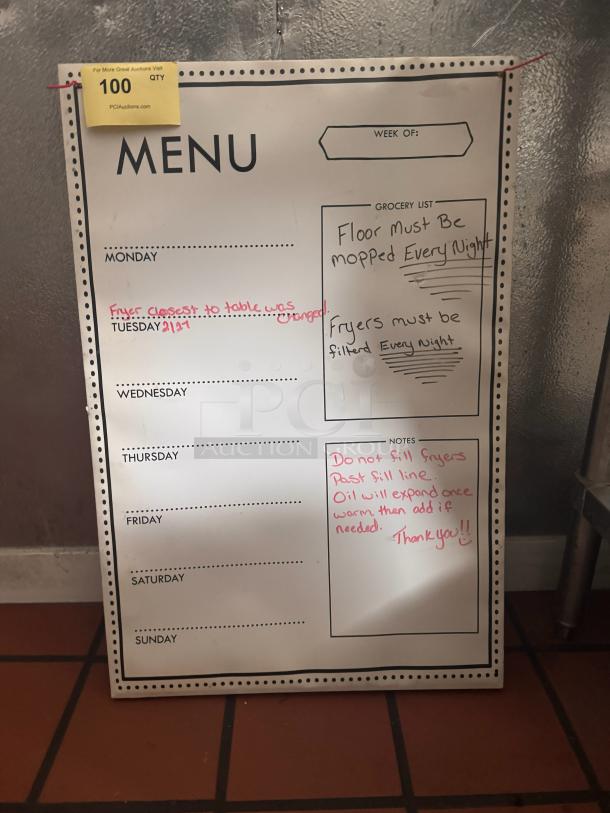 For More Great Auctions Visit
100
QTY
PCIAuctions.com
MENU
WEEK OF:
MONDAY
Fryer closest to table was
changed!
TUESDAY 2/27
WEDNESDAY
THURSDAY
FRIDAY
SATURDAY
SUNDAY
GROCERY LIST
Floor Must Be
mopped Every Night
Fryers must be
filterd Every Night
NOTES
Do not fill fryers
Past fill line.
Oil will expand once
warm then add if
needed.
Thank you!!
PCI
AUCTION GROUP